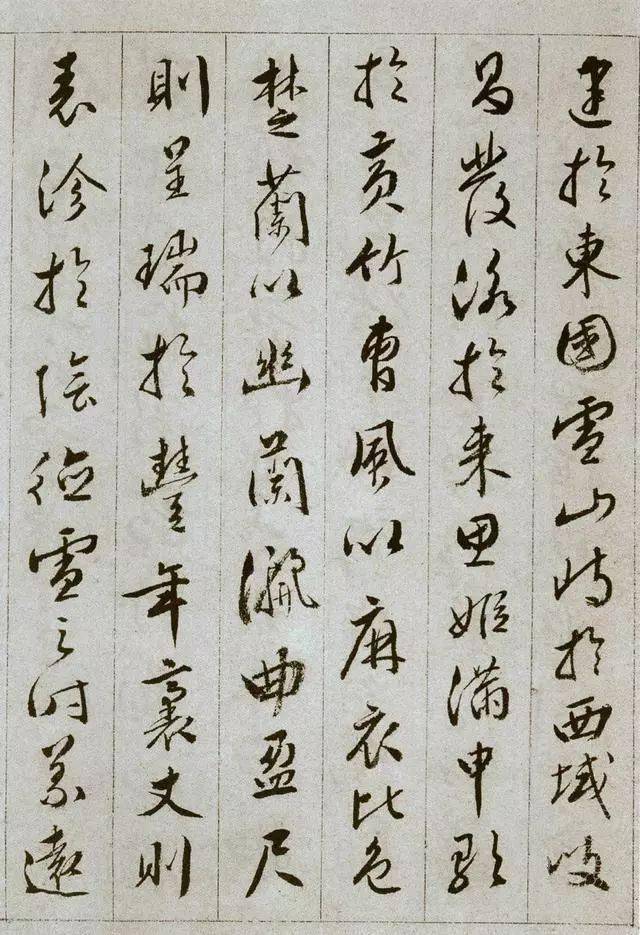 建於東國雪山峙於西域岐
昌發詠於來思姬滿申歌
於黃竹曹風以麻衣比色
楚蘭以幽蘭儷曲盈尺
則呈瑞於豐年裹丈則
表沴於陰德雪之時義遠